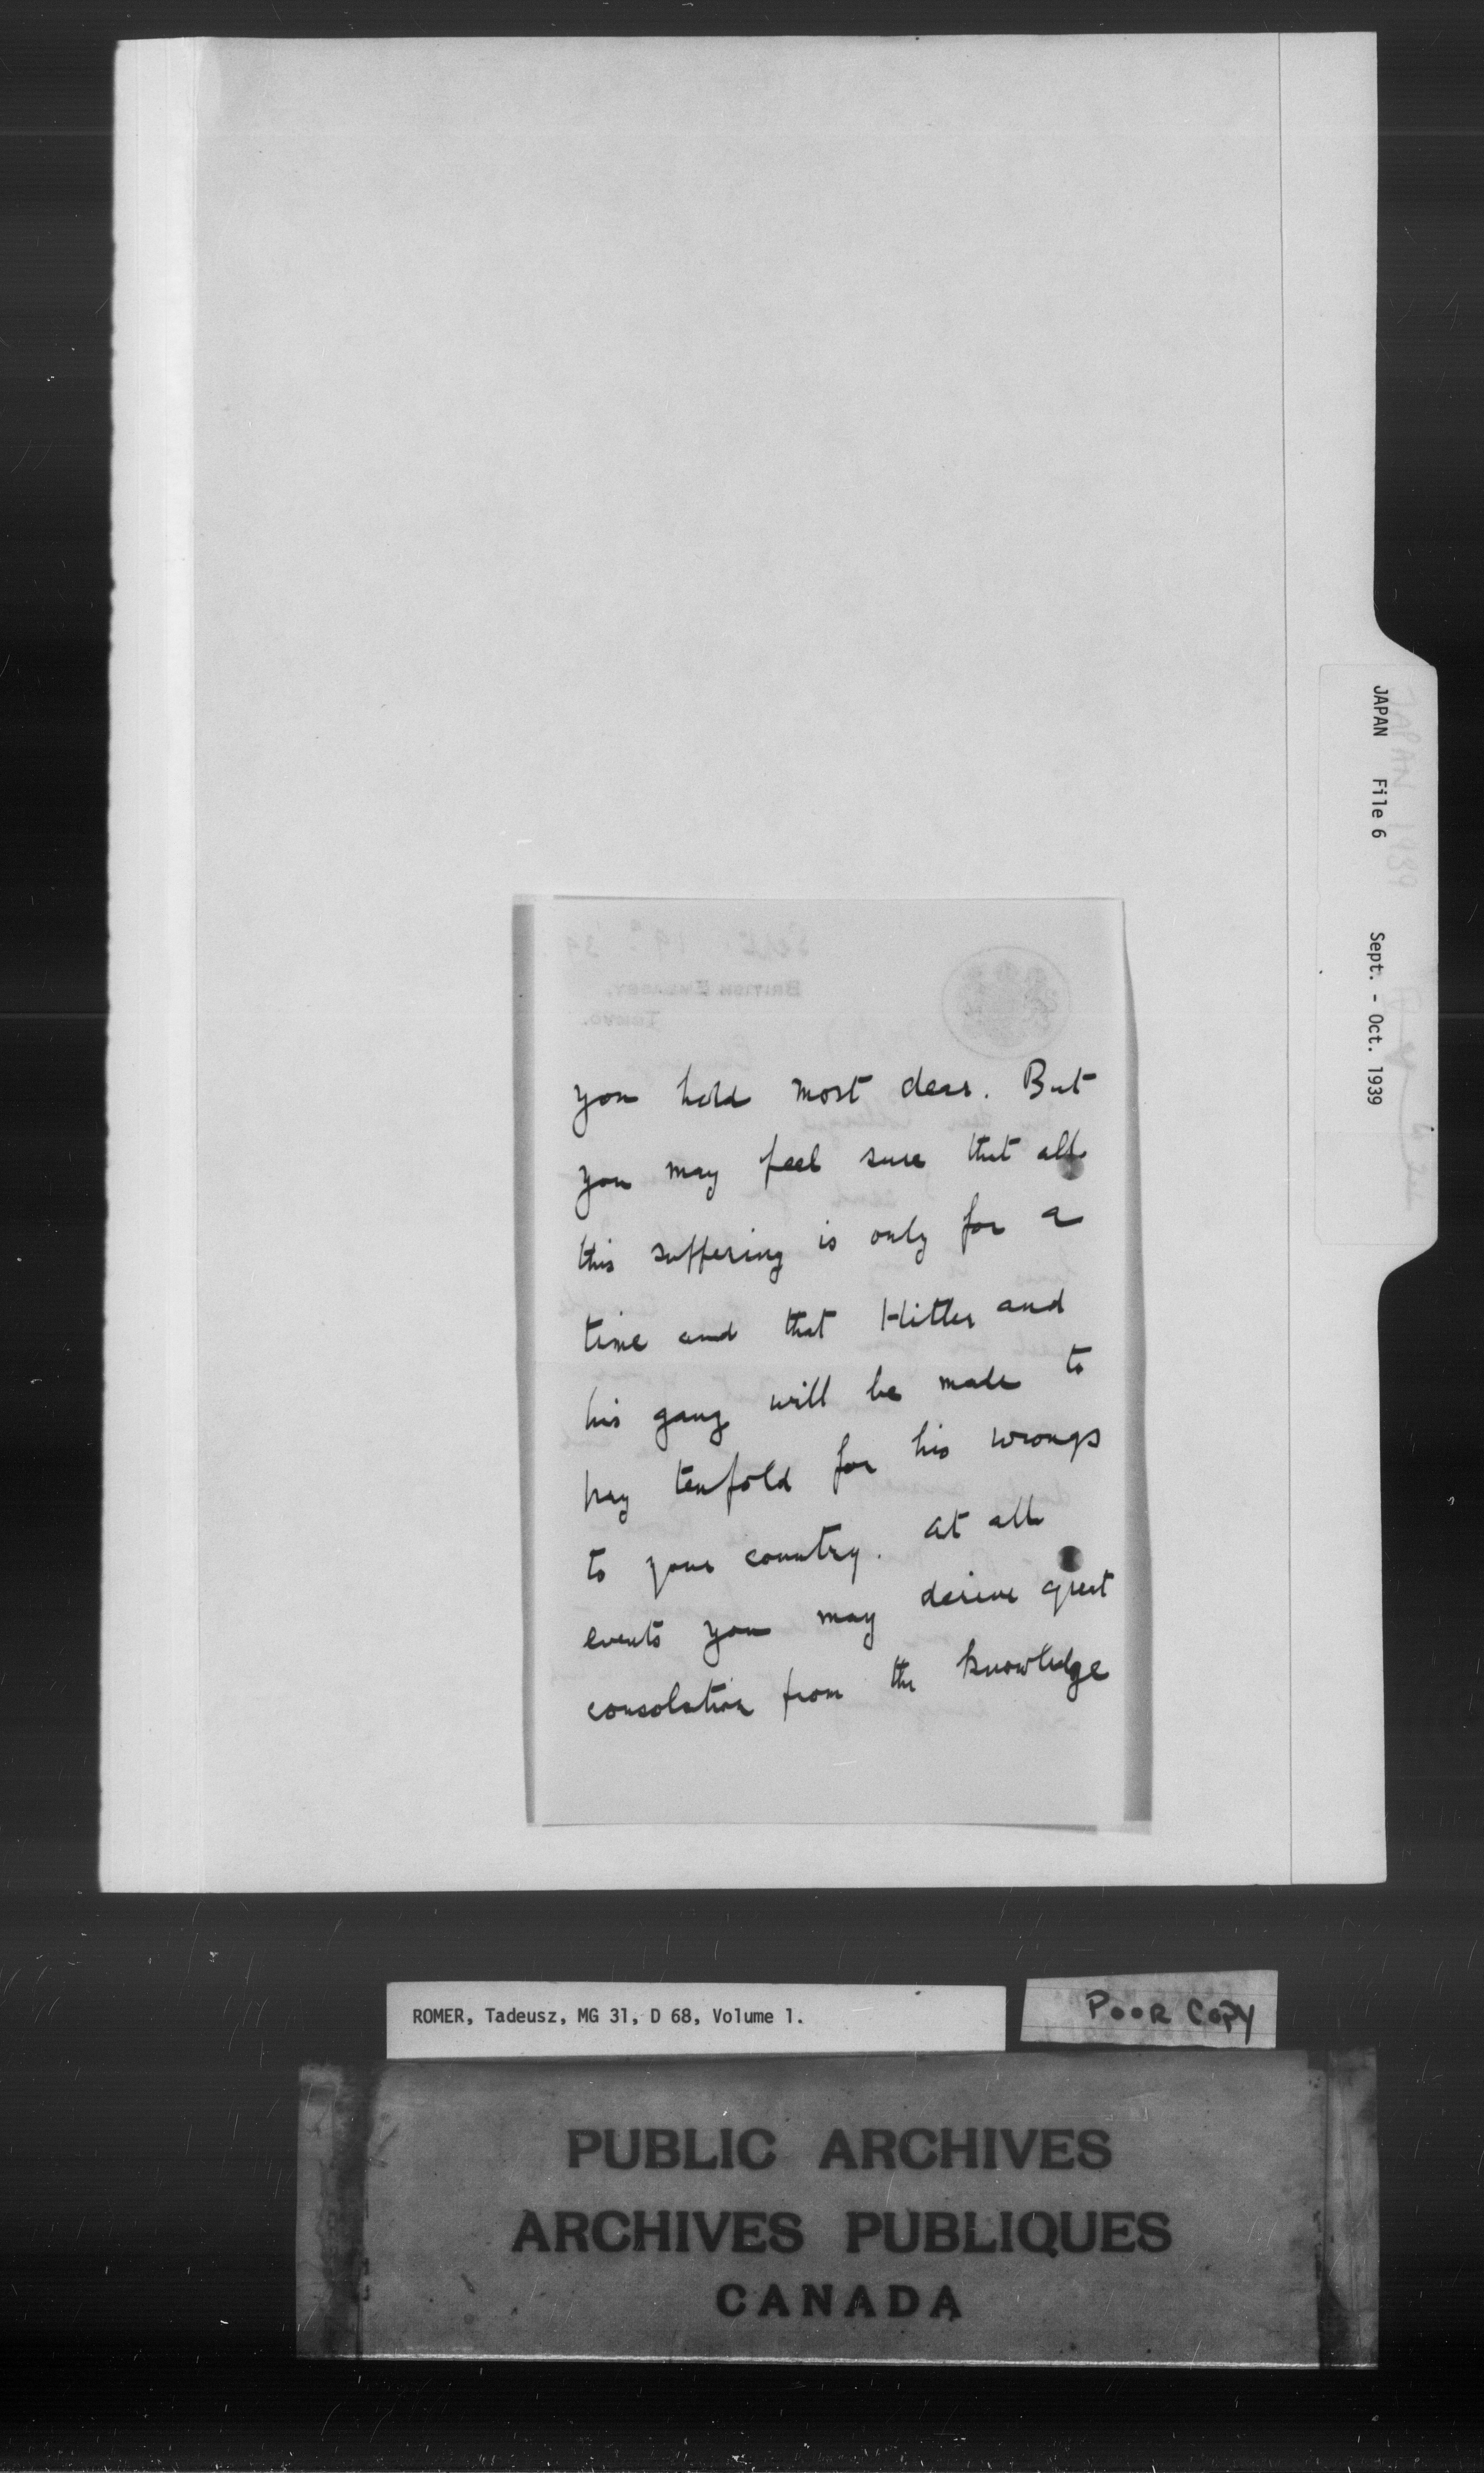 you hold most dear. But
you may feel sure that all
this suffering is only for a
time and that Hitler and
his gang will be made to
pay tenfold for his wrongs
to your country. At all
events you may derive great
consolation from the knowledge
JAPAN File 6 Sept. - Oct. 1939
ROMER, Tadeusz, MG 31, D 68, Volume 1.
POOR COPY
PUBLIC ARCHIVES
ARCHIVES PUBLIQUES
CANADA